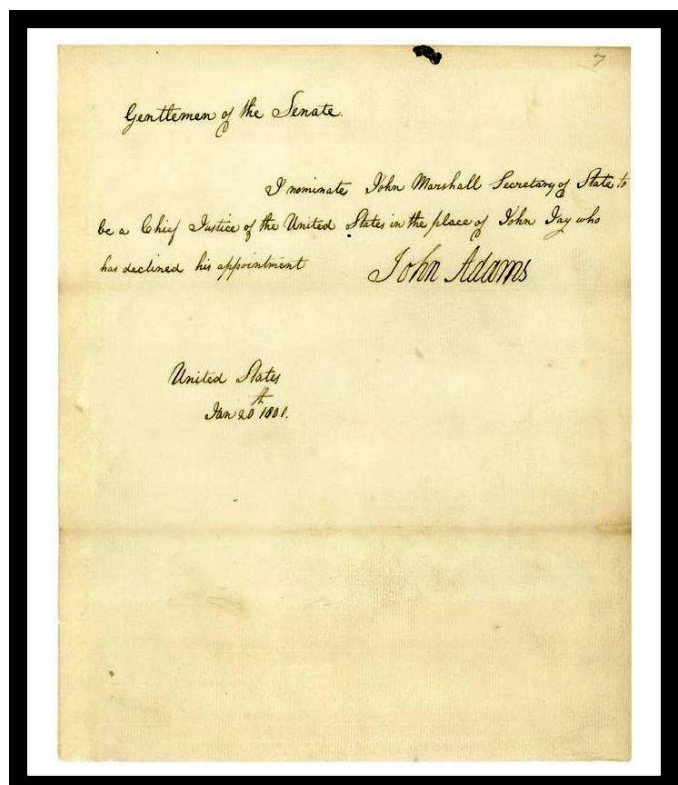 7
Gentlemen of the Senate.
I nominate John Marshall Secretary of State to
be a Chief Justice of the United States in the place of John Jay who
has declined his appointment John Adams
United States
Jan 20th 1801.